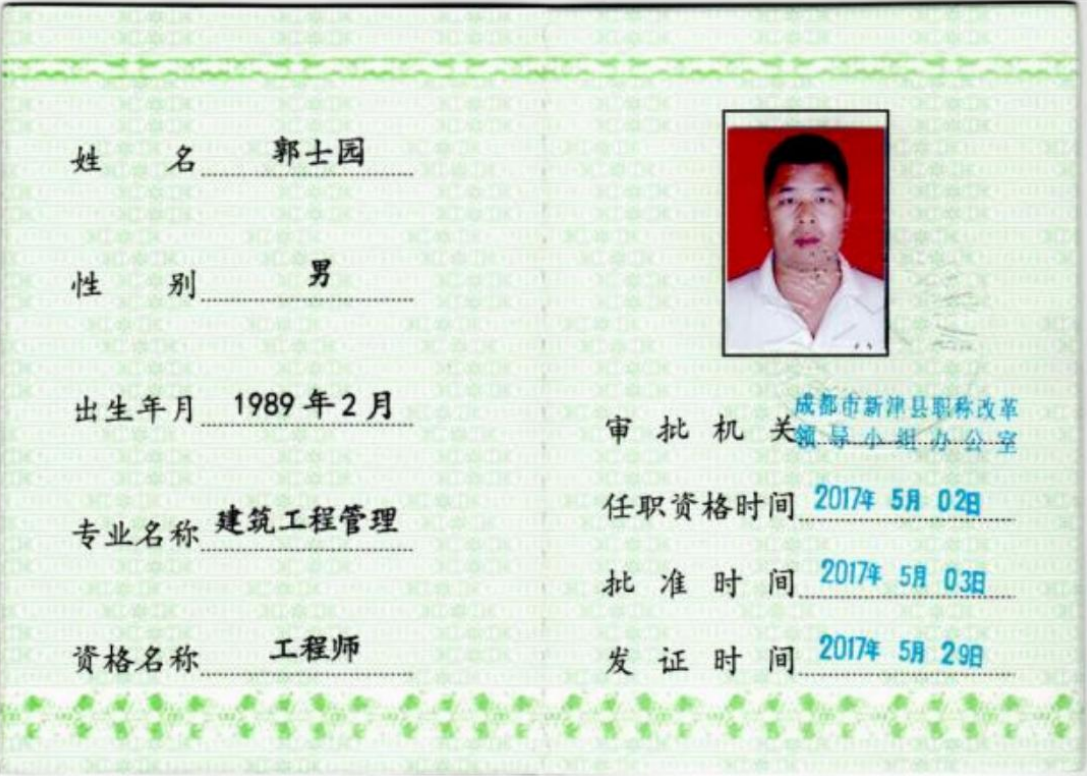 姓名 郭士园
性别 男
出生年月 1989年2月
专业名称 建筑工程管理
资格名称 工程师
审批机关 成都市新津县职称改革
领导小组办公室
任职资格时间 2017年 5月 02日
批准时间 2017年 5月 03日
发证时间 2017年 5月 29日